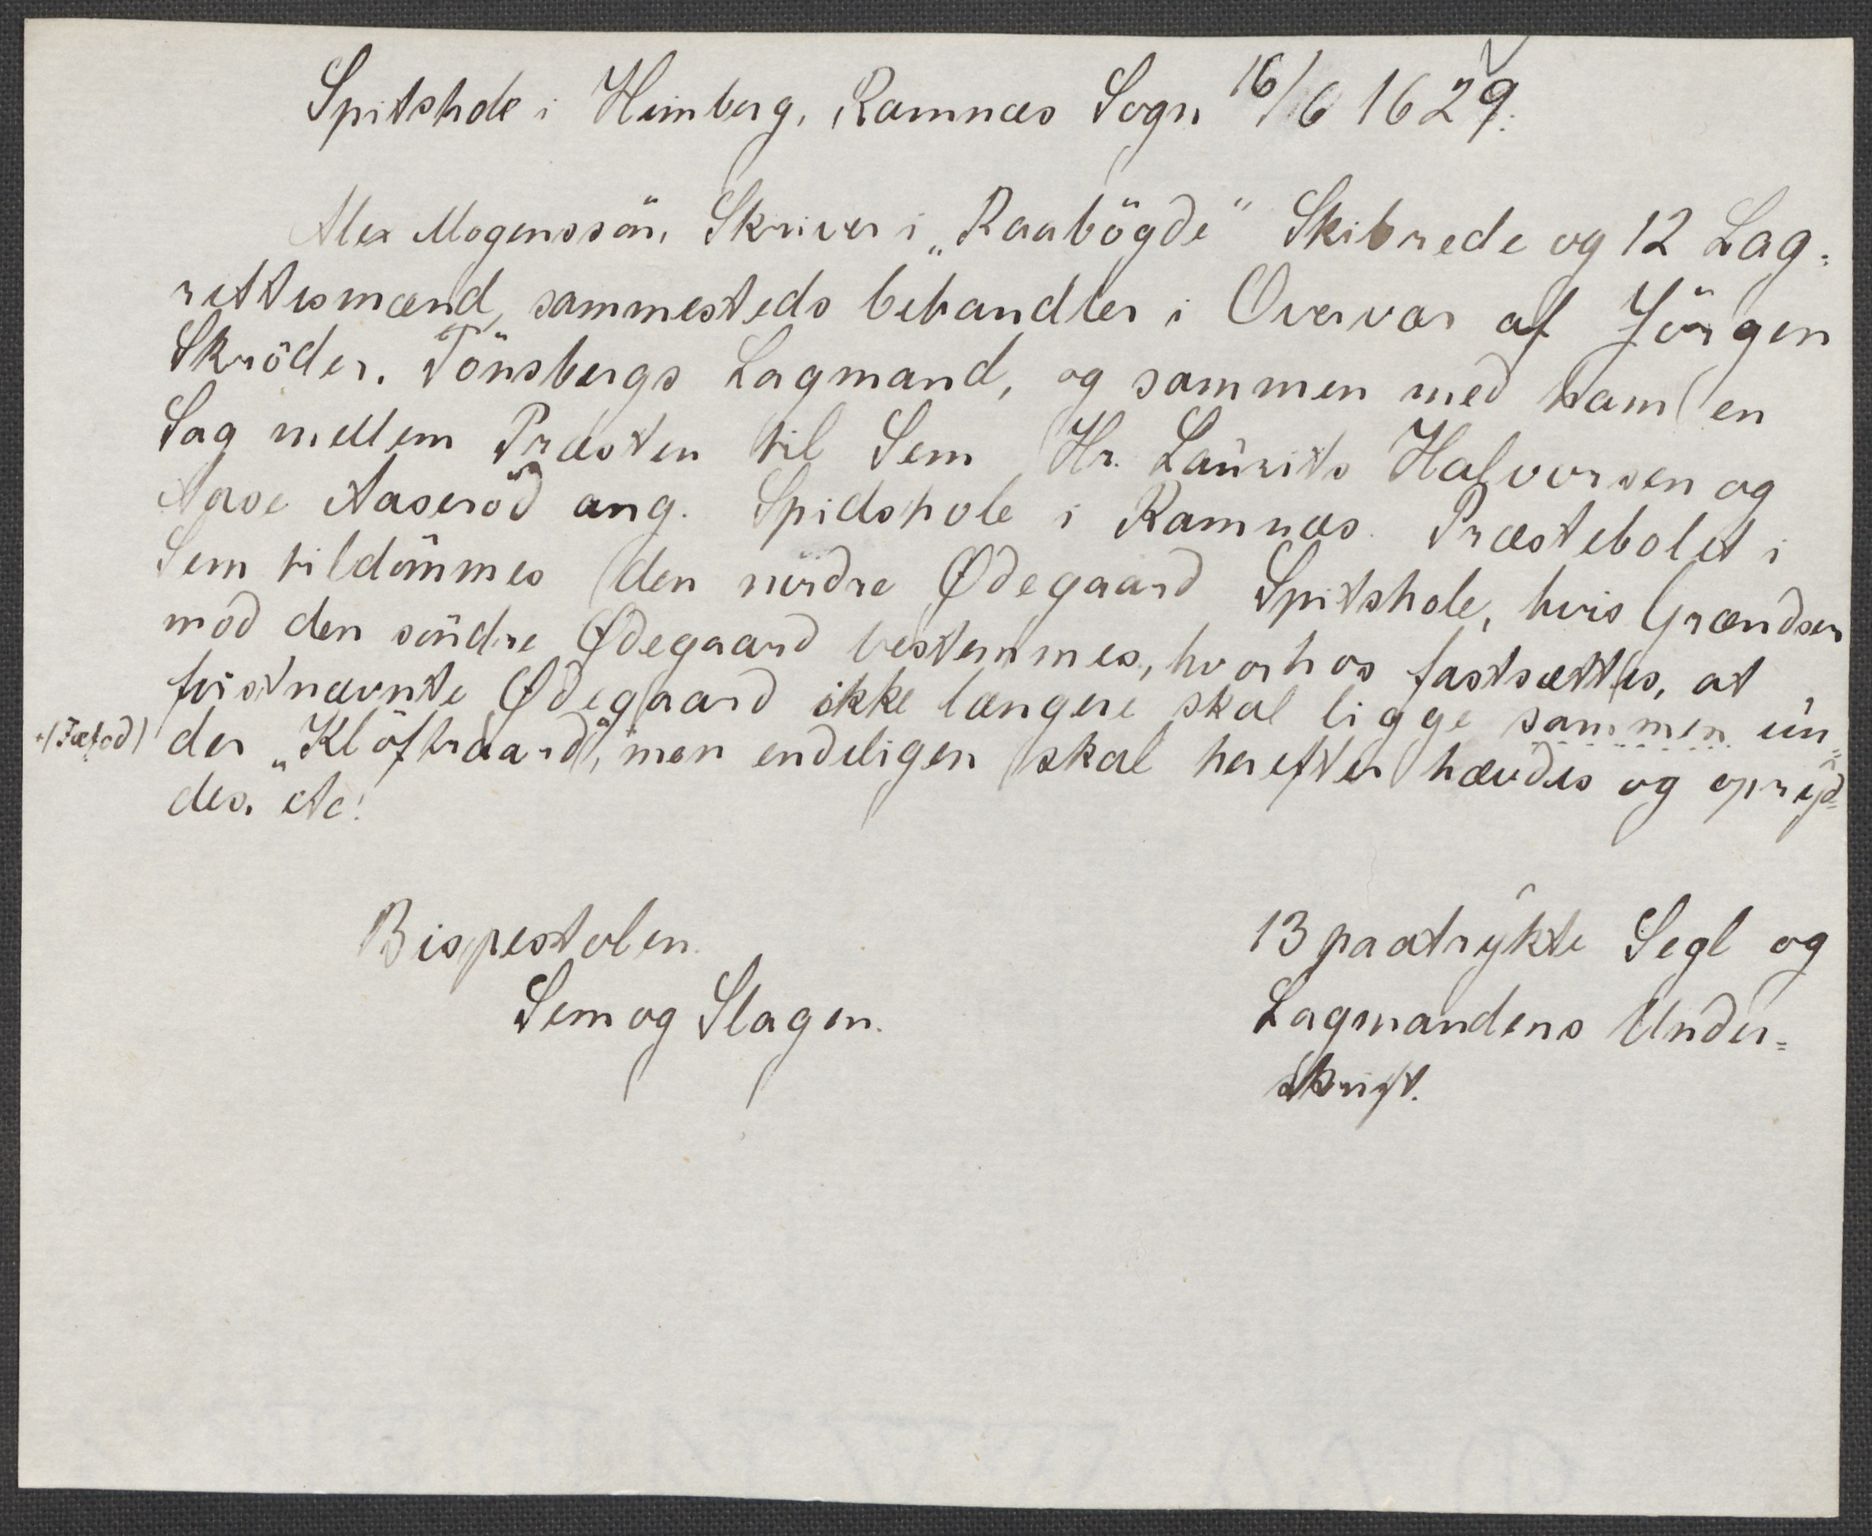 Spitshole i Heimberg, Ramnæs Sogn 16/6 1629.
Alex Mogenssön, Skriver i „Raabögde" Skibrede og 12 Lag=
rettesmænd sammesteds behandler i Overvær af Jörgen
Skröder, Tönsbergs Lagmand, og sammen med ham en
Sag mellem Præsten til Sem Hr. Laurits Halvorsen og
Aase Aaseröd ang. Spidshole i Ramnæs. Præstebolet i
Sem tildömmes den nördre Ødegaard Spitshole, hvis Grændser
mod den söndre Ødegaard bestemmes, hvorhos fastsættes, at
förstnævnte Ødegaard ikke længere skal ligge sammen un=
+/(Fæfod) der „Klöftraard", men endeligen skal herefter hævdes og opryd=
des, etc!
Bispestolen.
Sem og Slagen.
13 paatrykte Segl og
Lagmandens Under=
skrift.